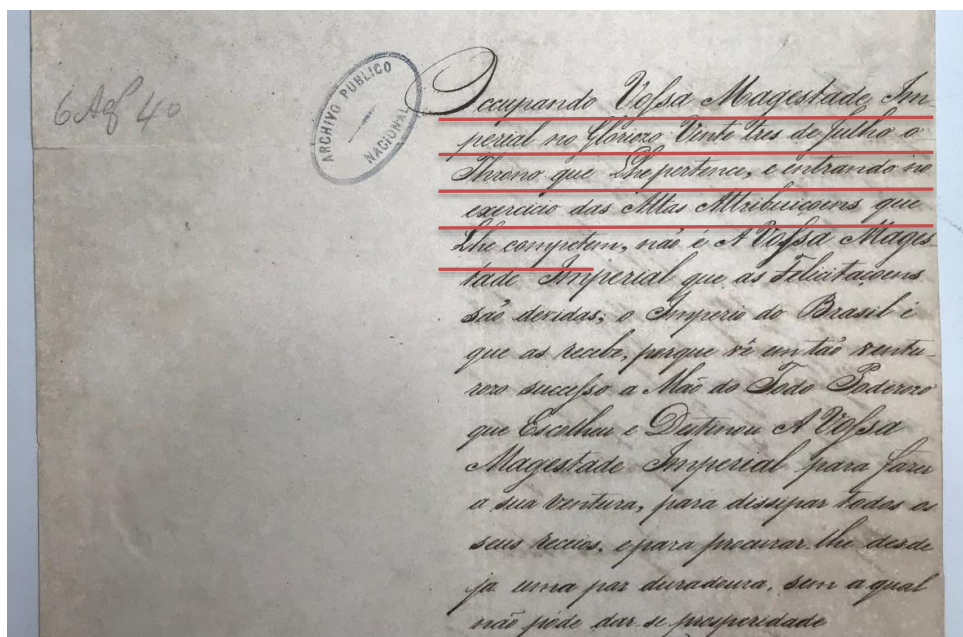 6 Ag 40
ARCHIVO PUBLICO NACIONAL
Occupando Vossa Magestade Im-
perial no Gloriozo Vinte tres de Julho o
Throno que Lhe pertence, e entrando no
exercicio das Altas Attribuiçoens que
Lhe competem, não é A Vossa Mages
tade Imperial que as Felicitaçoens
são devidas; o Imperio do Brasil é
que as recebe, porque vê em tão ventu-
rozo successo a Mão do Todo Poderozo
que Escolheu e Destinou A Vossa
Magestade Imperial para fazer
a sua ventura, para dissipar todos os
seus receios, e para procurar-lhe desde
ja uma paz duradoura, sem a qual
não póde dar-se prosperidade